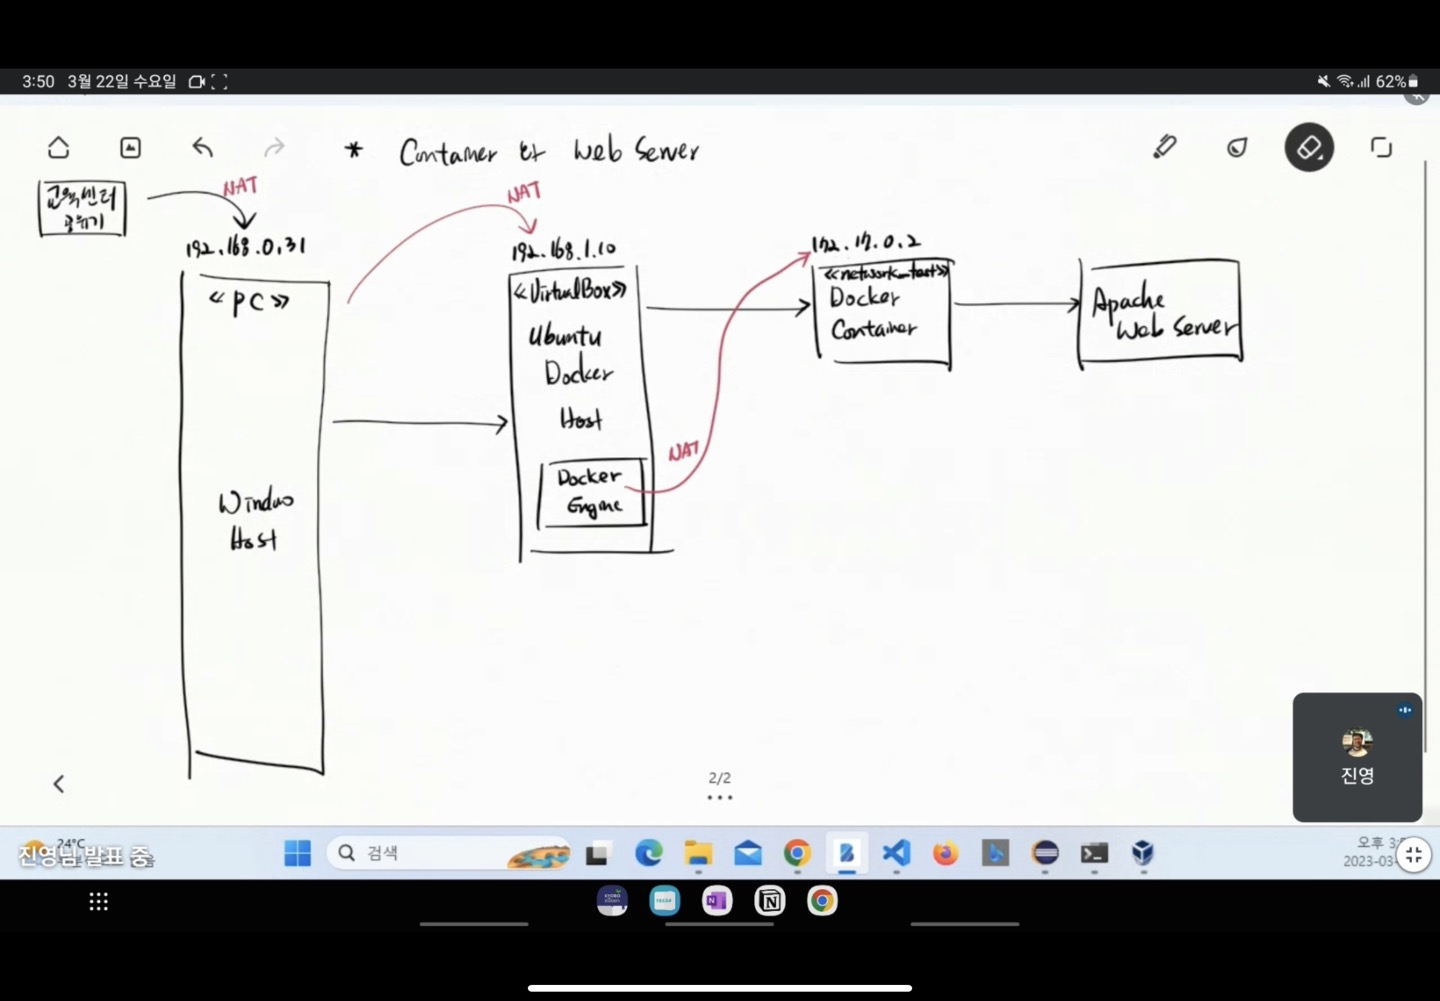 3:50 3월 22일 수요일
62%
* Container 와 Web Server
교육센터
공유기
NAT
192.168.0.31
<<PC>>
Window
Host
NAT
192.168.1.10
<<VirtualBox>>
Ubuntu
Docker
Host
Docker
Engine
NAT
172.17.0.2
<<network_test>>
Docker
Container
Apache
Web Server
진영
2/2
24°C
진영님 발표 중
검색
오후 3:5
2023-03-